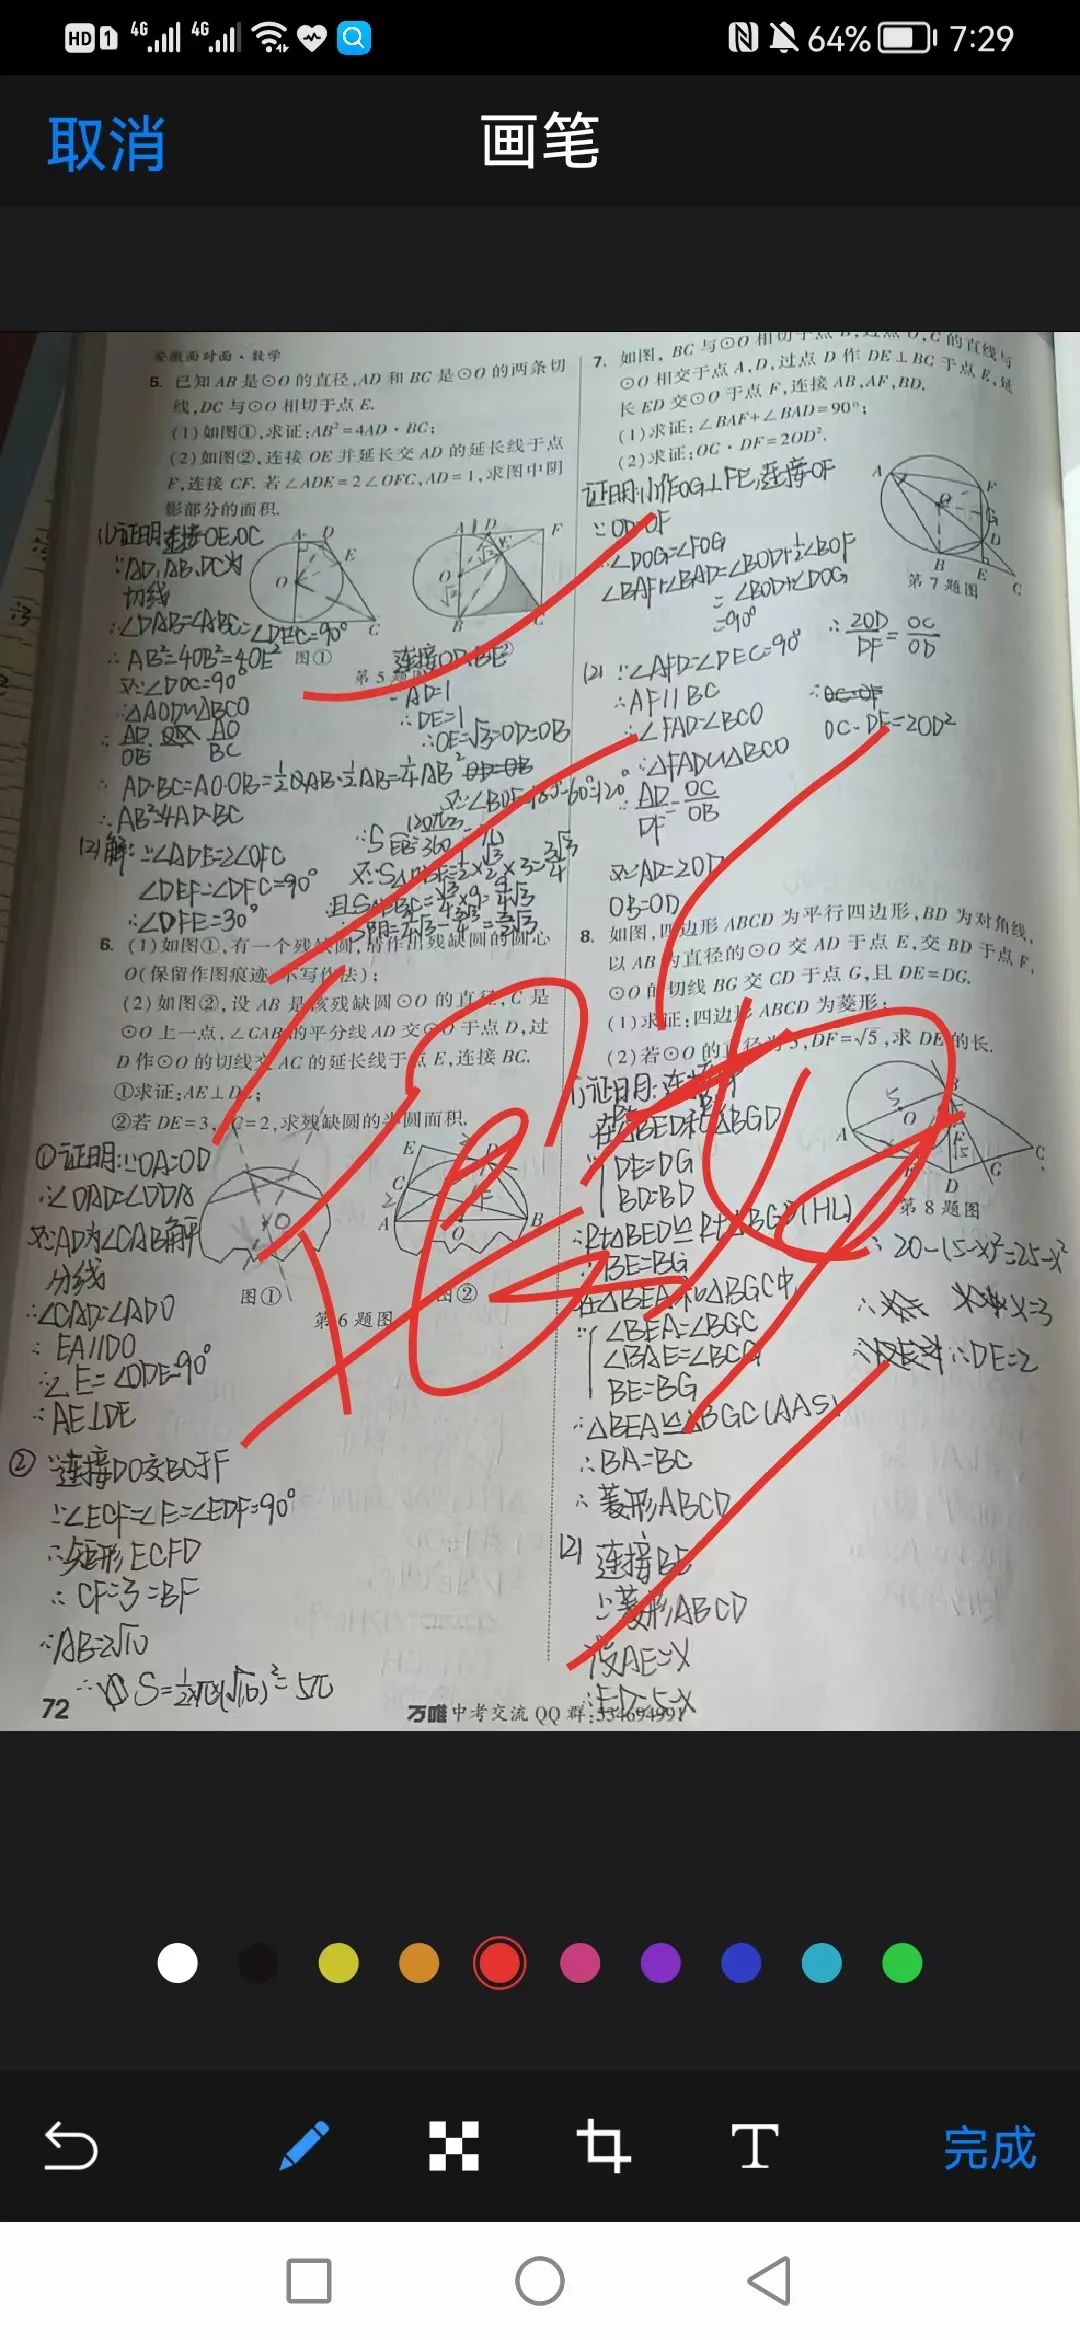 HD 1 4G 4G 64% 7:29
取消 画笔
安徽面对面·数学
5. 已知 AB 是⊙O 的直径,AD 和 BC 是⊙O 的两条切
线,DC 与⊙O 相切于点 E.
(1)如图①,求证:AB²=4AD·BC;
(2)如图②,连接 OE 并延长交 AD 的延长线于点
F,连接 CF. 若∠ADE=2∠OFC,AD=1,求图中阴
影部分的面积.
(1)证明:连接OE,OC
∵AD,AB,DC为
切线
∴∠DAB=∠ABC=∠DEC=90°
∴AB²=4OB²=4OE²
又∵∠DOC=90°
∴△AOD∽△BCO
图①
第 5 题
连接OD,BE
AD=1
∴DE=1
∴OE=√3=OD=OB
∴AD·BC=AO·OB=
∴AB²=4AD·BC
(2)解:∵∠ADE=2∠OFC
∠DEF=∠DFC=90°
∴∠DFE=30°
6. (1)如图①,有一个残缺圆,请作出残缺圆的圆心
O(保留作图痕迹,不写作法);
(2)如图②,设 AB 是该残缺圆⊙O 的直径,C 是
⊙O 上一点,∠CAB 的平分线 AD 交⊙O 于点 D,过
D 作⊙O 的切线交 AC 的延长线于点 E,连接 BC.
①求证:AE⊥DE;
②若 DE=3, C=2,求残缺圆的半圆面积.
①证明:∵OA=OD
又∵AD为∠CAB角平
分线
∴∠CAD=∠ADO
∴EA∥DO
∴∠E=∠ODE=90°
∴AE⊥DE
图①
图②
第 6 题图
② 连接DO交BC于F
∵∠ECF=∠E=∠EDF=90°
∴矩形ECFD
∴CF=3=BF
∴AB=2√10
72
7. 如图, BC 与⊙O 相切于点 B,过点 O,C 的直线与
⊙O 相交于点 A,D,过点 D 作 DE⊥BC 于点 E,延
长 ED 交⊙O 于点 F,连接 AB,AF,BD.
(1)求证:∠BAF+∠BAD=90°;
(2)求证:OC·DF=2OD².
证明:(1)作OG⊥FE,连接OF
∵OD=OF
∴∠DOG=∠FOG
∠BAF+∠BAD=∠BOD+½∠BOF
=∠BOD+∠DOG
=90°
第 7 题图
(2) ∵∠AFD=∠DEC=90°
∴AF∥BC
∴∠FAD=∠BCO
∴△FAD∽△BCO
∴AD/DF=OC/OB
又∵AD=2OD
OB=OD
∴2OD/DF=OC/OD
OC·DF=2OD²
8. 如图,四边形 ABCD 为平行四边形,BD 为对角线,
以 AB 为直径的⊙O 交 AD 于点 E,交 BD 于点 F,
⊙O 的切线 BG 交 CD 于点 G,且 DE=DG.
(1)求证:四边形 ABCD 为菱形;
(2)若⊙O 的直径为 5,DF=√5,求 DE 的长.
(1)证明:连接
在△BED和△BGD
DE=DG
BD=BD
∴Rt△BED≌Rt△BGD(HL)
∴BE=BG
在△BEA和△BGC中
∠BEA=∠BGC
∠BAE=∠BCG
BE=BG
∴△BEA≌△BGC(AAS)
∴BA=BC
∴菱形ABCD
(2) 连接BE
∵菱形ABCD
设AE=x
∴ED=5-x
第 8 题图
∴20-(5-x)²=25-x²
x=3
∴DE=2
万唯中考交流 QQ 群:334694991
完成